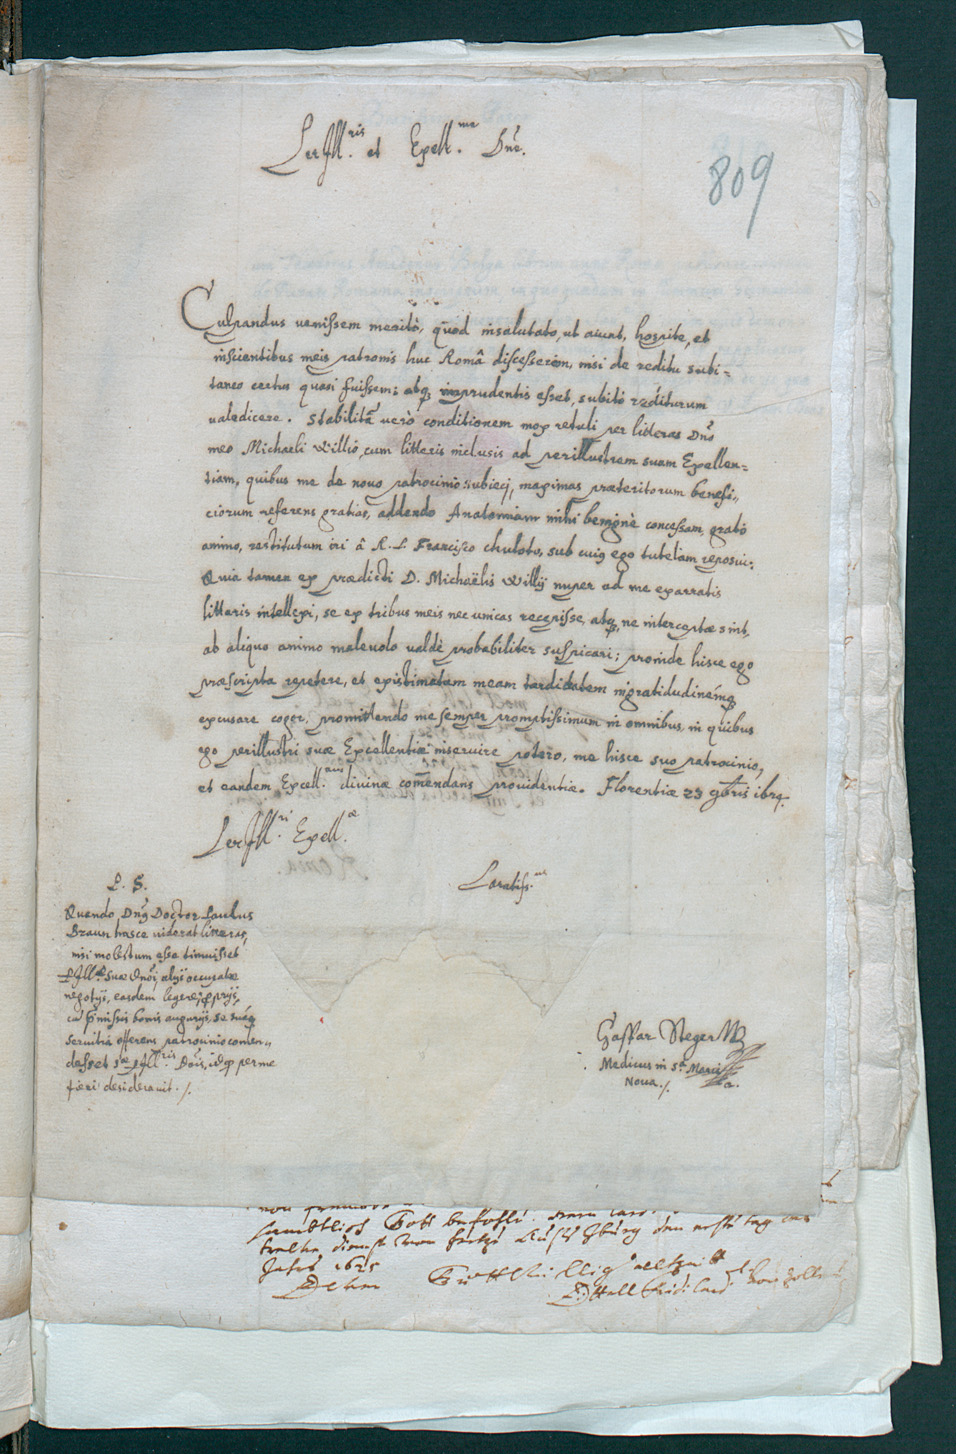 PerIll.ris et Excell.me Dne.
809
Culpandus uenissem meritò, quòd insalutato, ut aiunt, hospite, et
inscientibus meis patronis huc Româ discesserem, nisi de reditu subi=
taneo certus quasi fuissem: atq. imprudentis esset, subitò rediturum
ualedicere. Stabilitâ uerò conditionem mox retuli per litteras Dno
meo Michaeli Willio, cum litteris inclusis ad perillustrem suam Excellen=
tiam, quibus me de nouo patrocinio subieci, maximas præteritorum benefi=
ciorum referens gratias, addendo Anatomiam mihi benignè concessam, grato
animo, restitutum iri â R. P. Francisco chuloto, sub cuius ego tutelam reposui:
Quia tamen ex prædicti D. Michaëlis Willij nuper ad me exarratis
litteris intellexi, se ex tribus meis nec unicas recepisse, atq. ne interceptæ sint,
ab aliquo animo maleuolo ualdè probabiliter suspicari; proinde hisce ego
præscripta repetere, et existimatam meam tarditatem ingratidudinemq.
excusare cogor, promittendo me semper promptissimum in omnibus, in quibus
ego perillustri suæ Excellentiæ inseruire potero, me hisce suo patrocinio,
et eandem Excell. diuinæ com̄endans prouidentiæ. Florentiæ 23 9bris
PerIll.ri Excell.æ
Paratiss.
P. S.
Quando Dns Doctor Paulus
Braun hasce uiderat litteras,
nisi molestum esse timuisset
PIll. Suæ Dnoi, alijs occupatæ
negotijs, easdem legere,
bonis augurijs, se suaq.
seruitia offerens patrocinio comen=
dasset id per me
fieri desiderauit ./.
Gaspar Neger
Medicus in S. Maria
Noua ./.
Gott
Jahrs 1625